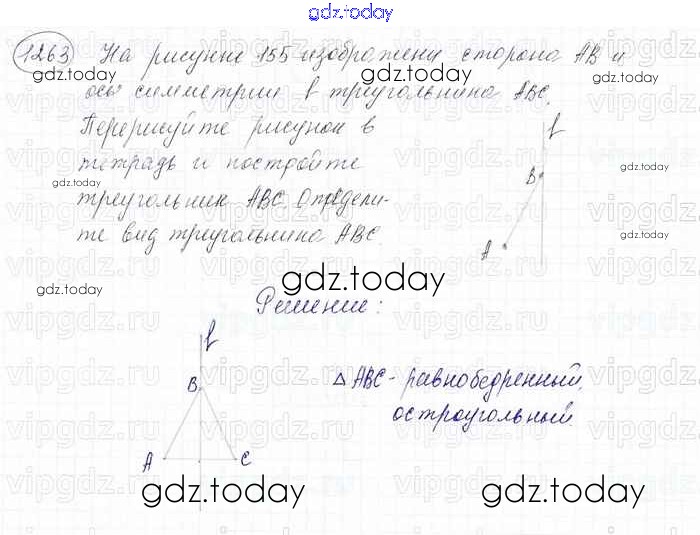 gdz.today
1263 На рисунке 155 изображены сторона AB и
ось симметрии l треугольника ABC.
Перерисуйте рисунок в
тетрадь и постройте
треугольник ABC. Определи-
те вид треугольника ABC.
l
B
A
Решение:
l
B
A
C
△ ABC - равнобедренный,
остроугольный.
gdz.today
gdz.today
gdz.today
gdz.today
gdz.today
gdz.today
gdz.today
gdz.today
gdz.today
vipgdz.ru